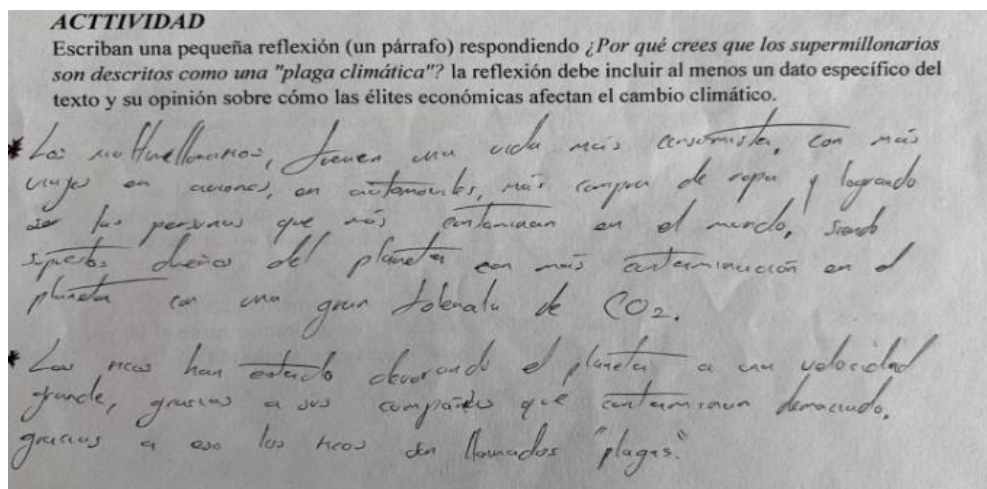 ACTTIVIDAD
Escriban una pequeña reflexión (un párrafo) respondiendo ¿Por qué crees que los supermillonarios
son descritos como una "plaga climática"? la reflexión debe incluir al menos un dato específico del
texto y su opinión sobre cómo las élites económicas afectan el cambio climático.
* Los multimillonarios, tienen una vida más consumista, con más
viajes en aviones, en automoviles, más compra de ropa y logrando
ser las personas que más contaminan en el mundo, siendo
supuestos dueños del planeta con más contaminación en el
planeta con una gran de CO2.
* Los ricos han estado devorando el planeta a una velocidad
grande, grasias a sus compañías que contaminan demaciado,
gracias a eso los ricos son llamados "plagas."